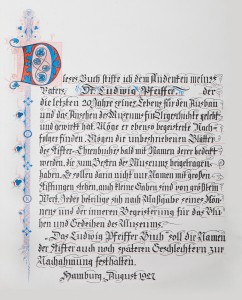 Dieses Buch stifte ich dem Andenken meines
Vaters, Dr. Ludwig Pfeiffer, der
die letzten 20 Jahre seines Lebens für den Ausbau
und das Ansehen des Museums für Vorgeschichte gelebt
und gewirkt hat. Möge er ebenso begeisterte Nach-
folger finden. Mögen die unbeschriebenen Blätter
des Stifter-Ehrenbuches bald mit Namen derer bedeckt
werden, die zum Besten des Museums beigetragen
haben. Es sollen darin nicht nur Namen mit großen
Stiftungen stehen, auch kleine Gaben sind von größtem
Wert. Jeder beteilige sich nach Maßgabe seines Kön-
nens und der inneren Begeisterung für das Blü-
hen und Gedeihen des Museums.
„Das Ludwig Pfeiffer Buch" soll die Namen
der Stifter auch noch späteren Geschlechtern zur
Nachahmung festhalten.
Hamburg, August 1922